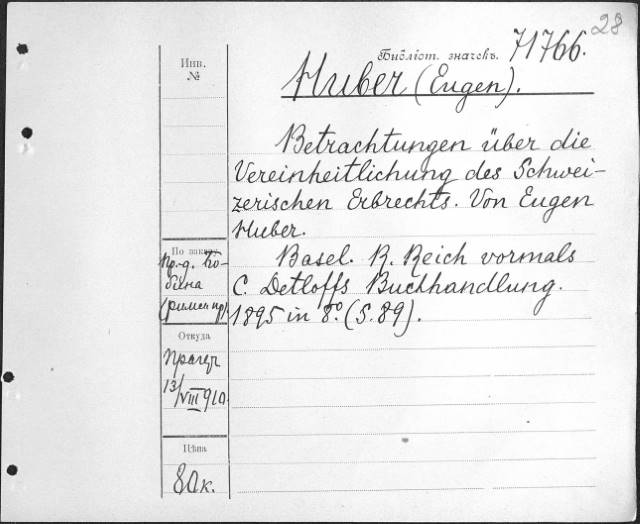 28
Библіот. значекъ. 71766.
Huber (Eugen).
Инв.
№
Betrachtungen über die
Vereinheitlichung des Schwei-
zerischen Erbrechts. Von Eugen
Huber.
Basel. R. Reich vormals
C. Detloffs Buchhandlung.
1895 in 8º. (S. 89).
По заказу
Пр.-д.
Откуда
13/VIII 910
Цѣна
80 к.